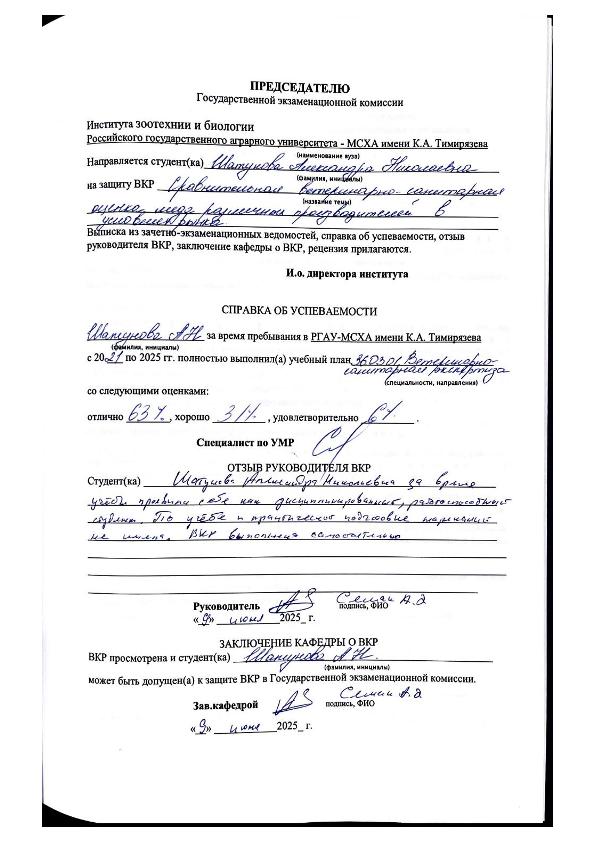 ПРЕДСЕДАТЕЛЮ
Государственной экзаменационной комиссии
Института зоотехнии и биологии
Российского государственного аграрного университета - МСХА имени К.А. Тимирязева
(наименование вуза)
Направляется студент(ка) Шатунова Александра Николаевна
(фамилия, инициалы)
на защиту ВКР Сравнительная ветеринарно-санитарная
(название темы)
оценка меда различных производителей в
условиях рынка
Выписка из зачетно-экзаменационных ведомостей, справка об успеваемости, отзыв
руководителя ВКР, заключение кафедры о ВКР, рецензия прилагаются.
И.о. директора института
СПРАВКА ОБ УСПЕВАЕМОСТИ
Шатунова А Н за время пребывания в РГАУ-МСХА имени К.А. Тимирязева
(фамилия, инициалы)
с 2021 по 2025 гг. полностью выполнил(а) учебный план 36.03.01 Ветеринарно-
санитарная экспертиза
(специальности, направления)
со следующими оценками:
отлично 63%, хорошо 31%, удовлетворительно 6%.
Специалист по УМР
ОТЗЫВ РУКОВОДИТЕЛЯ ВКР
Студент(ка) Шатунова Александра Николаевна за время
учебы проявила себя как дисциплинированный, работоспособный
студент. По учебе и практической подготовке нареканий
не имела. ВКР выполнена самостоятельно
Руководитель Семак А.Э
подпись, ФИО
«9» июня 2025_ г.
ЗАКЛЮЧЕНИЕ КАФЕДРЫ О ВКР
ВКР просмотрена и студент(ка) Шатунова А Н.
(фамилия, инициалы)
может быть допущен(а) к защите ВКР в Государственной экзаменационной комиссии.
Зав.кафедрой Семак А.Э
подпись, ФИО
«9» июня 2025_ г.